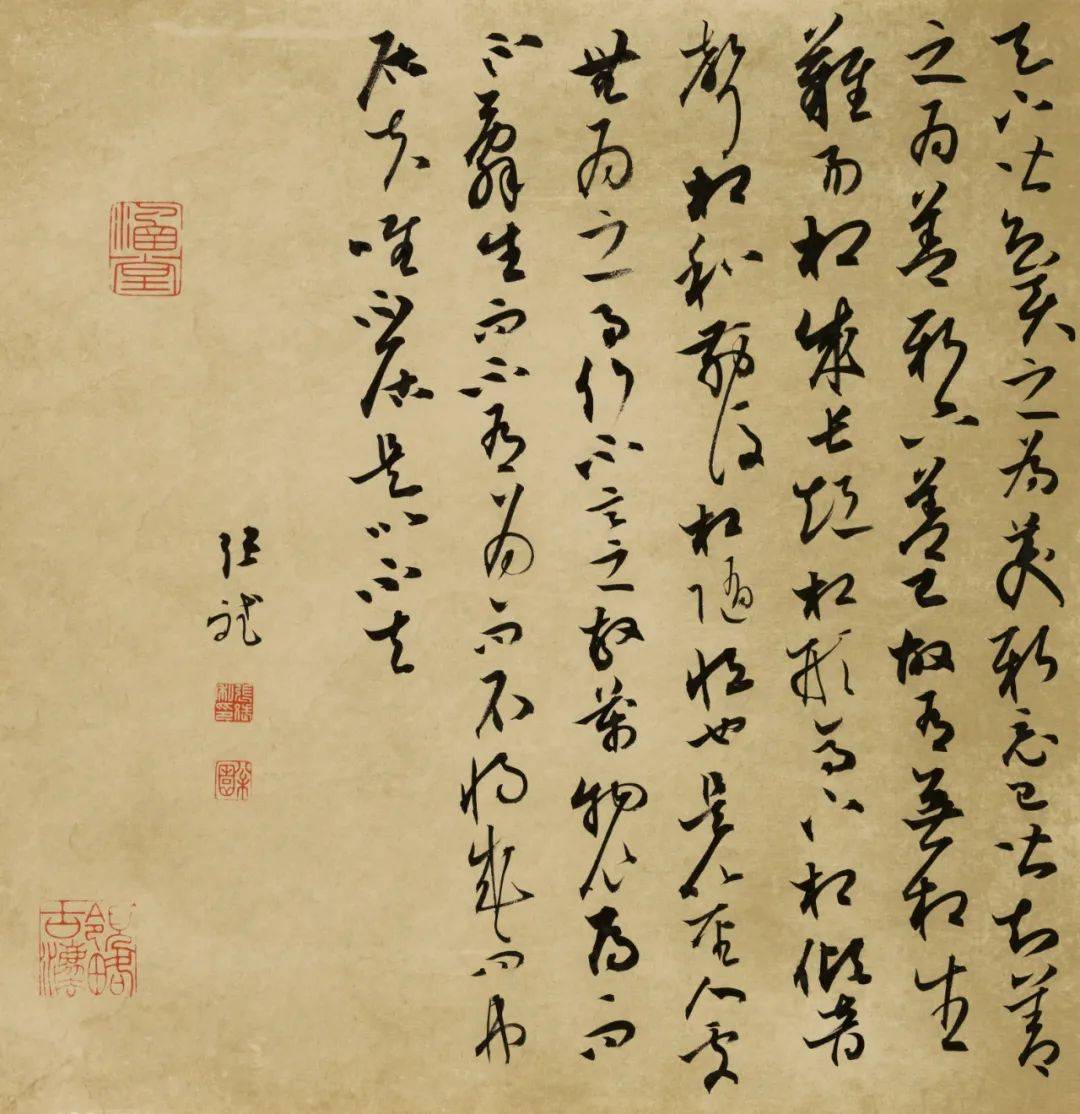 天下皆知美之為美斯惡已皆知善
之為善斯不善已故有無相生
難易相成長短相形高下相傾音
聲相和前後相隨恒也是以聖人處
無為之事行不言之教萬物作焉而
不辭生而不有為而不恃成而弗
居夫唯弗居是以不去